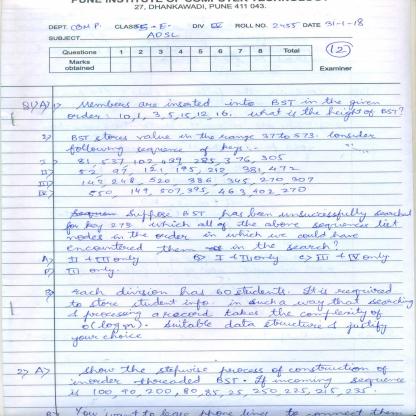 PUNE INSTITUTE OF COMPUTER TECHNOLOGY
27, DHANKAWADI, PUNE 411 043.
DEPT. COMP. CLASS S.E. DIV IV ROLL NO. 2455 DATE 31-1-18
SUBJECT ADSL
Questions 1 2 3 4 5 6 7 8 Total
Marks obtained
12
Examiner
Q1)A) 1) Members are inserted into BST in the given
order: 10, 1, 3, 5, 15, 12, 16. what is the height of BST?
2) BST stores value in the range 37 to 573. Consider
following sequence of keys:-
I) 81, 537, 102, 439, 285, 376, 305
II) 52, 97, 121, 195, 242, 381, 472
III) 142, 248, 520, 386, 345, 270, 307
IV) 550, 149, 507, 395, 463, 402, 270
Suppose BST has been unsuccessfully searched
for key 273. which all of the above sequences list
nodes in the order in which we could have
encountered them in the search?
A) II + III only B) I + III only C) III + IV only
D) III only.
B) Each division has 60 students. It is required
to store student info. in such a way that searching
& processing a record takes the complexity of
O(log n). Suitable data structure & justify
your choice
2) A) Show the stepwise process of construction of
inorder threaded BST. If incoming sequence
is 100, 90, 200, 80, 85, 25, 250, 225, 215, 235.
B) You want to lease phone lines to connect them